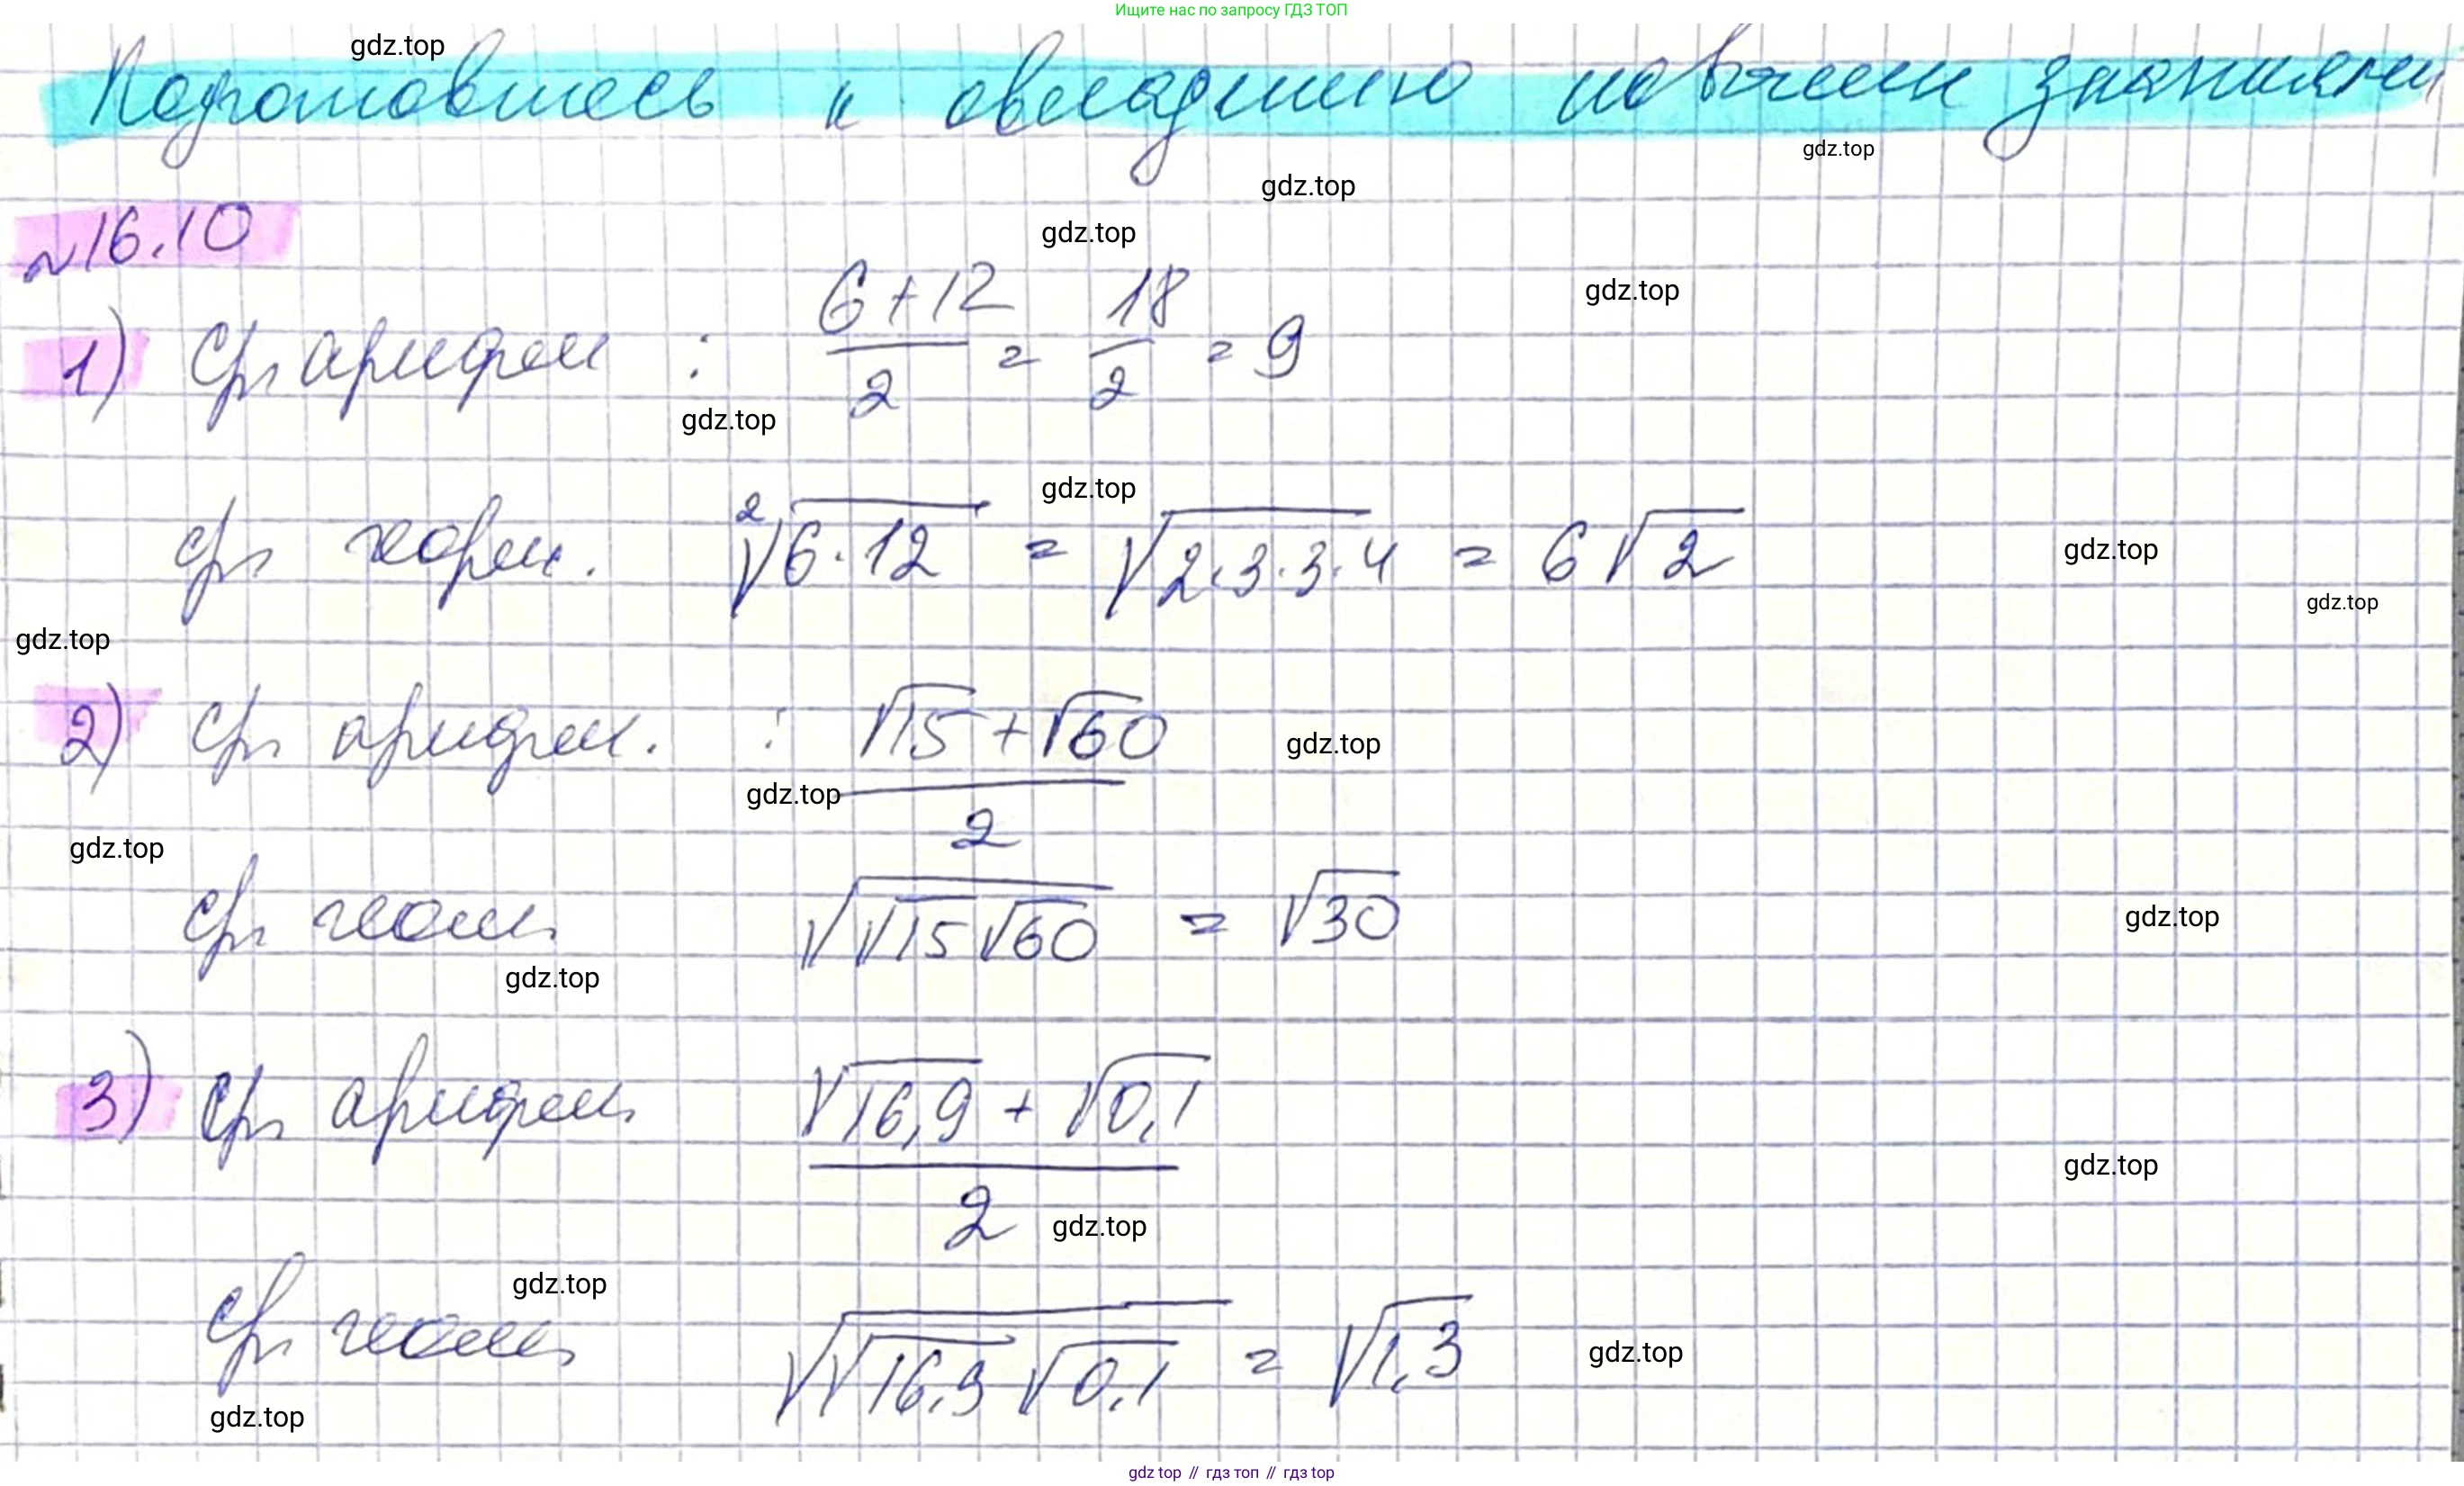 Ищите нас по запросу ГДЗ ТОП
gdz.top
Подготовьтесь к овладению новыми знаниями
gdz.top
gdz.top
№16.10
gdz.top
gdz.top
1) Ср арифм : (6+12)/2 = 18/2 = 9
gdz.top
gdz.top
ср геом. ²√(6·12) = √(2·3·3·4) = 6√2
gdz.top
gdz.top
gdz.top
2) Ср арифм. : (√15+√60)/2
gdz.top
gdz.top
gdz.top
Ср геом √(√15√60) = √30
gdz.top
gdz.top
3) Ср арифм (√16,9 + √0,1)/2
gdz.top
gdz.top
gdz.top
ср геом √(√16,9√0,1) = √1,3
gdz.top
gdz.top
gdz top // гдз топ // гдз top